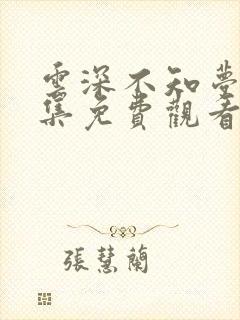 雲深不知夢
集免費觀看
張慧蘭